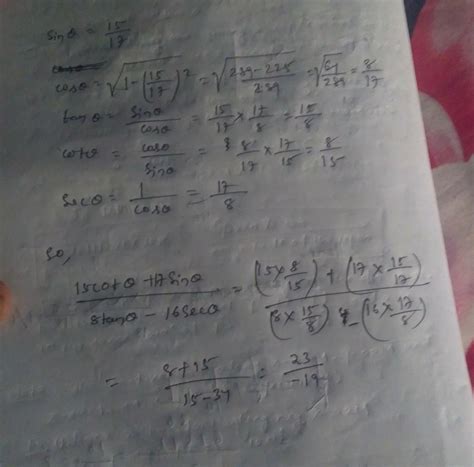 sinθ = 15/17
cosθ = √(1-(15/17)²) = √((289-225)/289) = √(64/289) = 8/17
tanθ = sinθ/cosθ = 15/17 × 17/8 = 15/8
cotθ = cosθ/sinθ = 8/17 × 17/15 = 8/15
secθ = 1/cosθ = 17/8
So,
(15cotθ + 17sinθ)/(8tanθ - 16secθ) = ((15×8/15) + (17×15/17))/((8×15/8) - (16×17/8))
= (8+15)/(15-34) = 23/-19